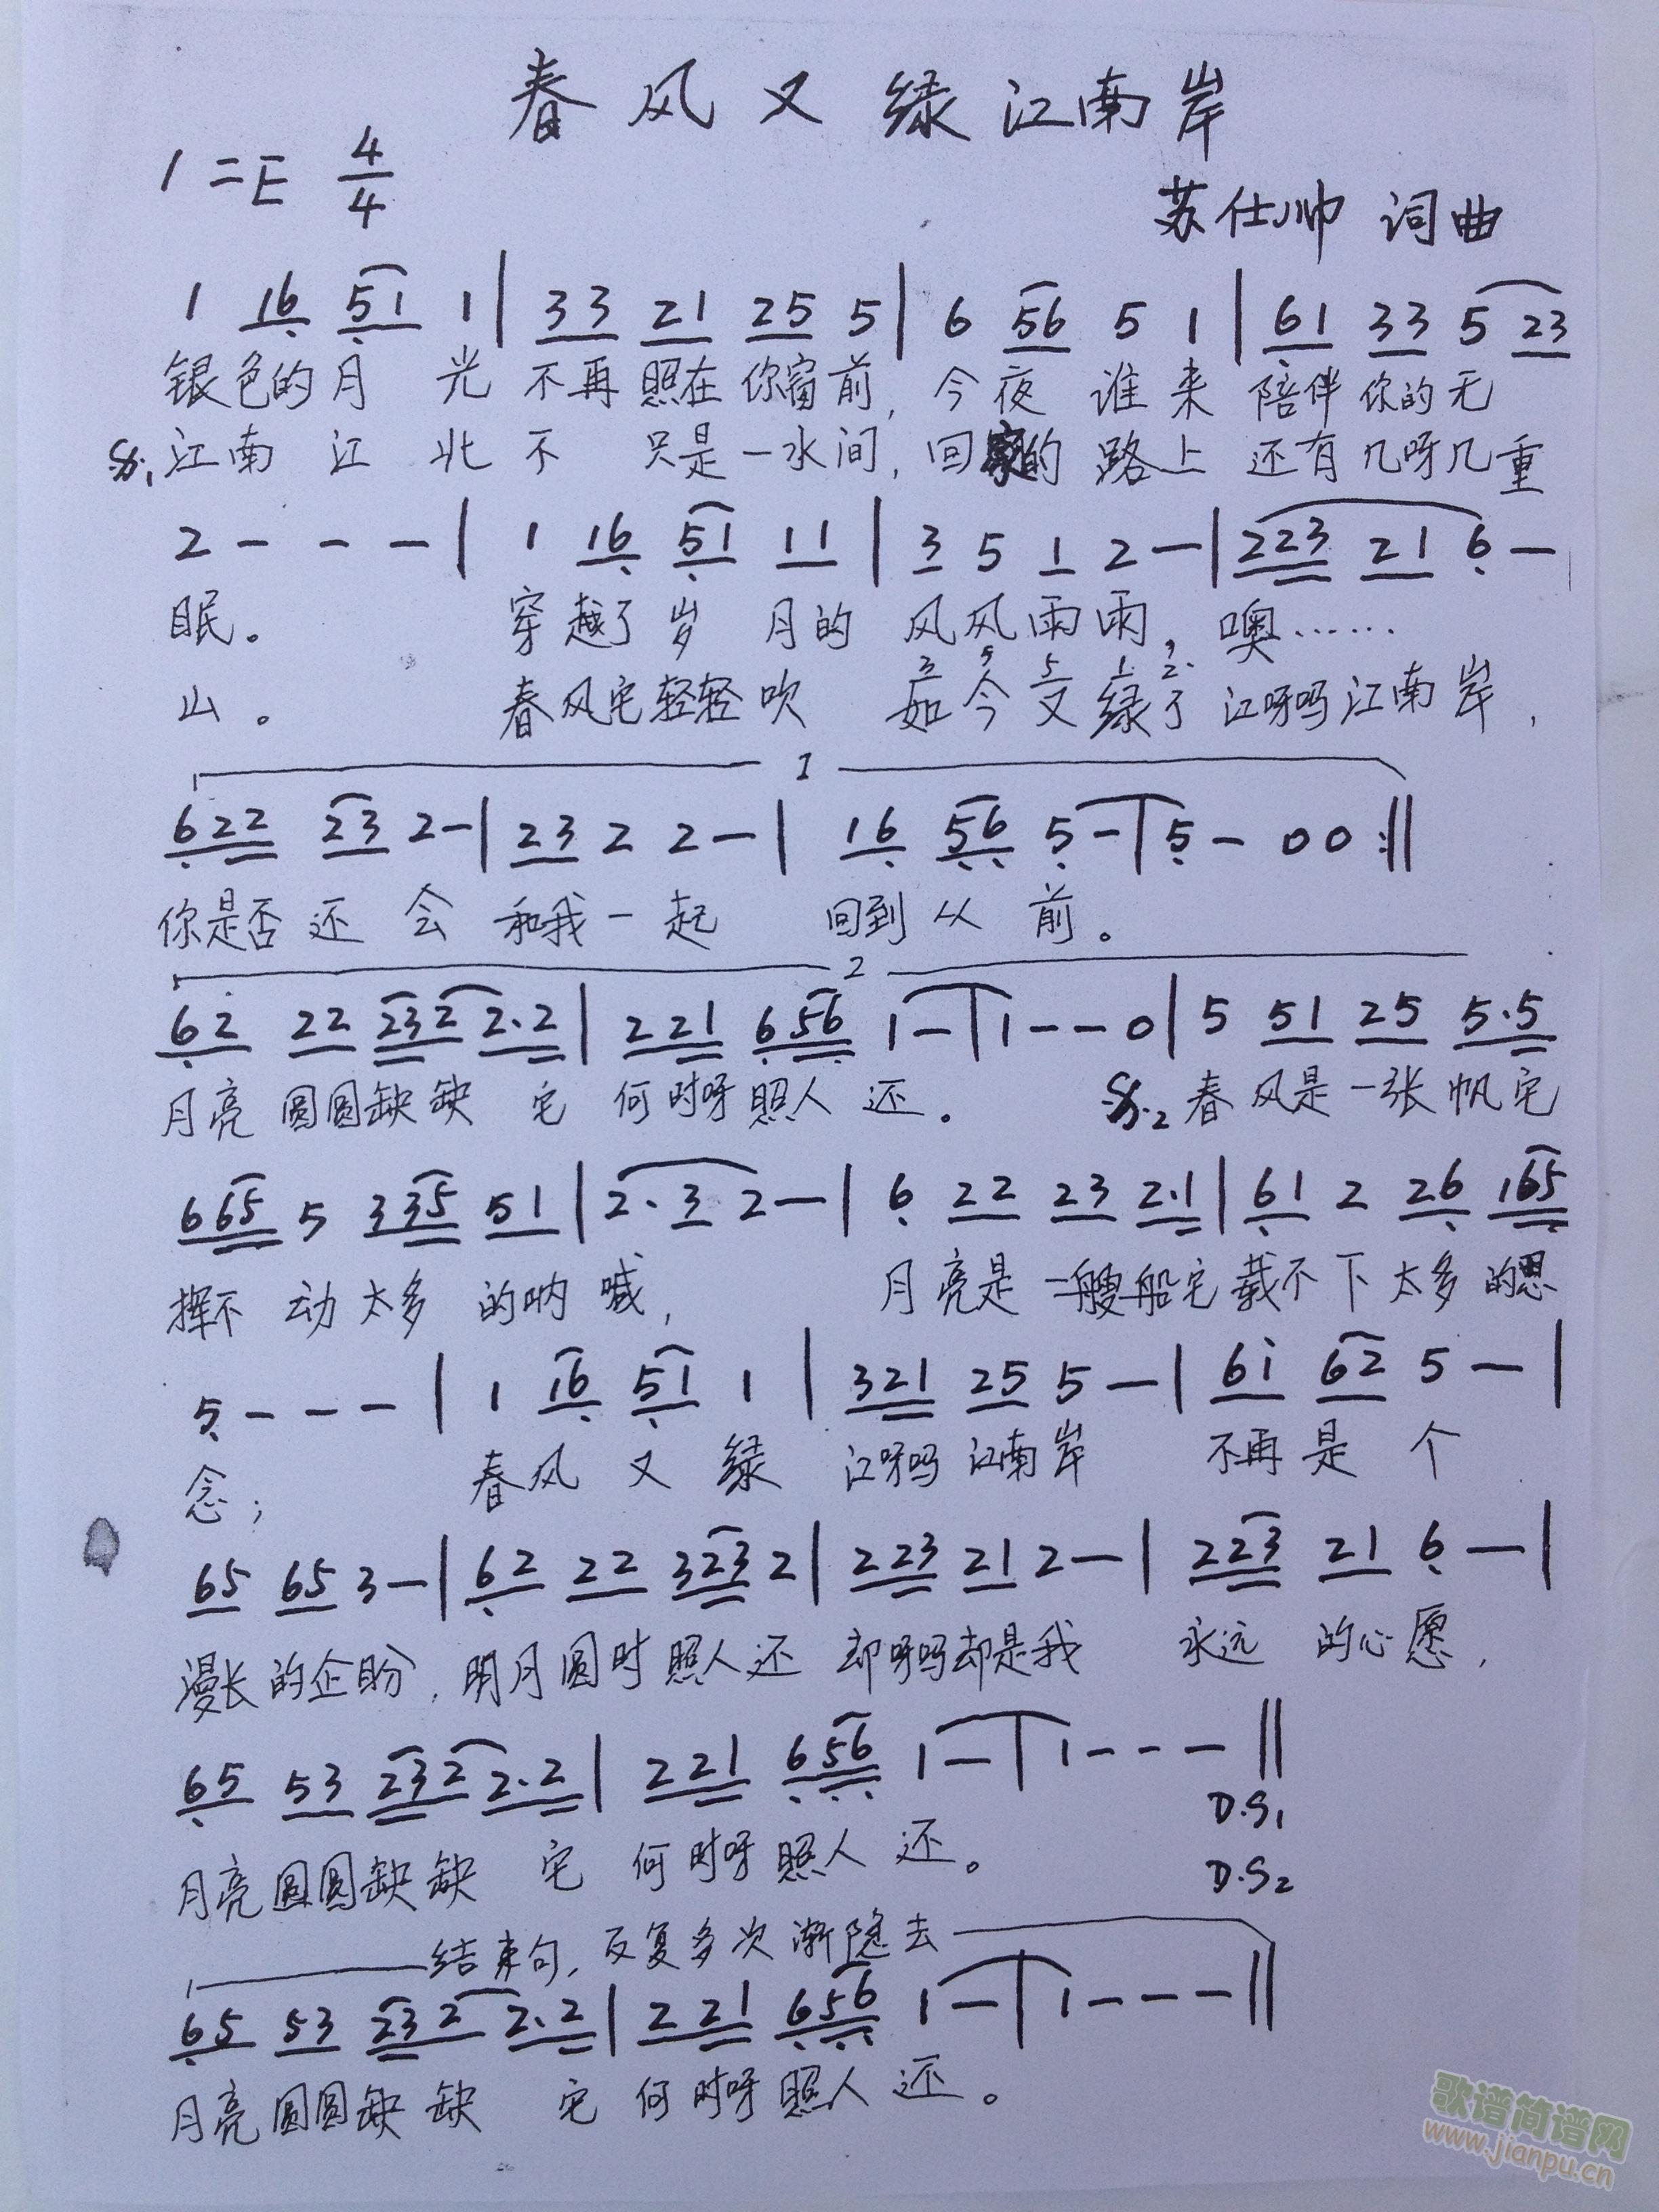 春风又绿江南岸
1=E 4/4
苏仕帅 词曲
1 16 51 1 | 33 21 25 5 | 6 56 5 1 | 61 33 5 23
银色的月 光 不再照在你窗前,今夜 谁来 陪伴你的无
𝄋1 江南 江 北 不 只是一水间,回家的路上 还有几呀几重
2 - - - | 1 16 51 11 | 3 5 1 2 - | 223 21 6 -
眠。 穿越了岁 月的 风风雨雨,噢……
3 5 5 1 2.
山。 春风它轻轻吹 如今又绿了 江呀吗江南岸,
1
622 23 2 - | 23 2 2 - | 16 56 5 - | 5 - 0 0 :||
你是否 还 会 和我一起 回到从 前。
2
62 22 232 2.2 | 221 656 1 - | 1 - - 0 | 5 51 25 5.5
月亮 圆圆缺缺 它 何时呀照人 还。 𝄋2 春风是一张帆它
665 5 335 51 | 2. 3 2 - | 6 22 23 2.1 | 61 2 26 165
挥不 动太多 的呐喊, 月亮是一艘船它载不下太多的思
5 - - - | 1 16 51 1 | 321 25 5 - | 61 62 5 - |
念; 春风 又 绿 江呀吗江南岸 不再是 个
65 65 3 - | 62 22 323 2 | 223 21 2 - | 223 21 6 - |
漫长的企盼,明月圆时照人还 却呀吗却是我 永远 的心愿,
65 53 232 2.2 | 221 656 1 - | 1 - - - ||
D.S1
月亮圆圆缺缺 它 何时呀照人 还。
D.S2
结束句,反复多次渐隐去
65 53 232 2.2 | 221 656 1 - | 1 - - - ||
月亮圆圆缺缺 它 何时呀照人 还。
歌谱简谱网
www.jianpu.cn